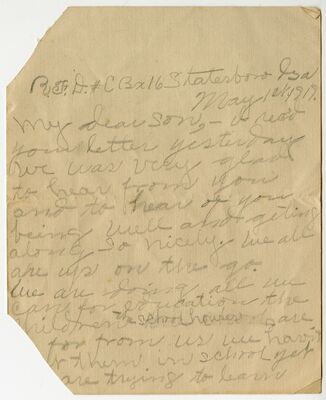 R.F.D. #C Bx16 Statesboro Ga
May 1st, 1919.
My dear son, - I read
your letter yesterday
we was very glad
to hear from you
and to hear of you
being well and geting
along so nicely. We all
are up on the go.
We are doing all we
can for education the
children the school houses are
far from us we hav
them in school yet
are trying to learn